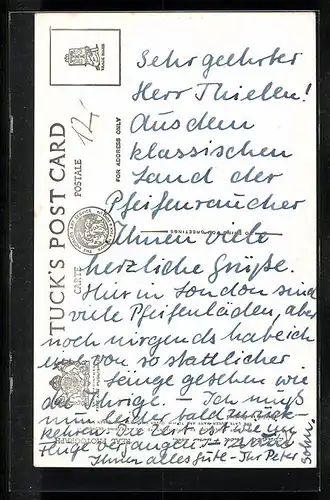 Sehr geehrter
Herr Thielen!
Aus dem
klassischen
Land der
Pfeifenraucher
Ihnen viele
herzliche Grüße.
Hier in London sind
viele Pfeifenläden, aber
noch nirgends habe ich
eine von so stattlicher
Länge gesehen wie
die Ihrige. – Ich muß
nun leider bald zurück-
kehren. Die Zeit ist wie im
Fluge vergangen. –
Ihnen alles Gute – Ihr Peter
Sohn.
TUCK'S POST CARD
CARTE POSTALE
FOR ADDRESS ONLY
TRADE MARK
12,-
REAL PHOTOGRAPH